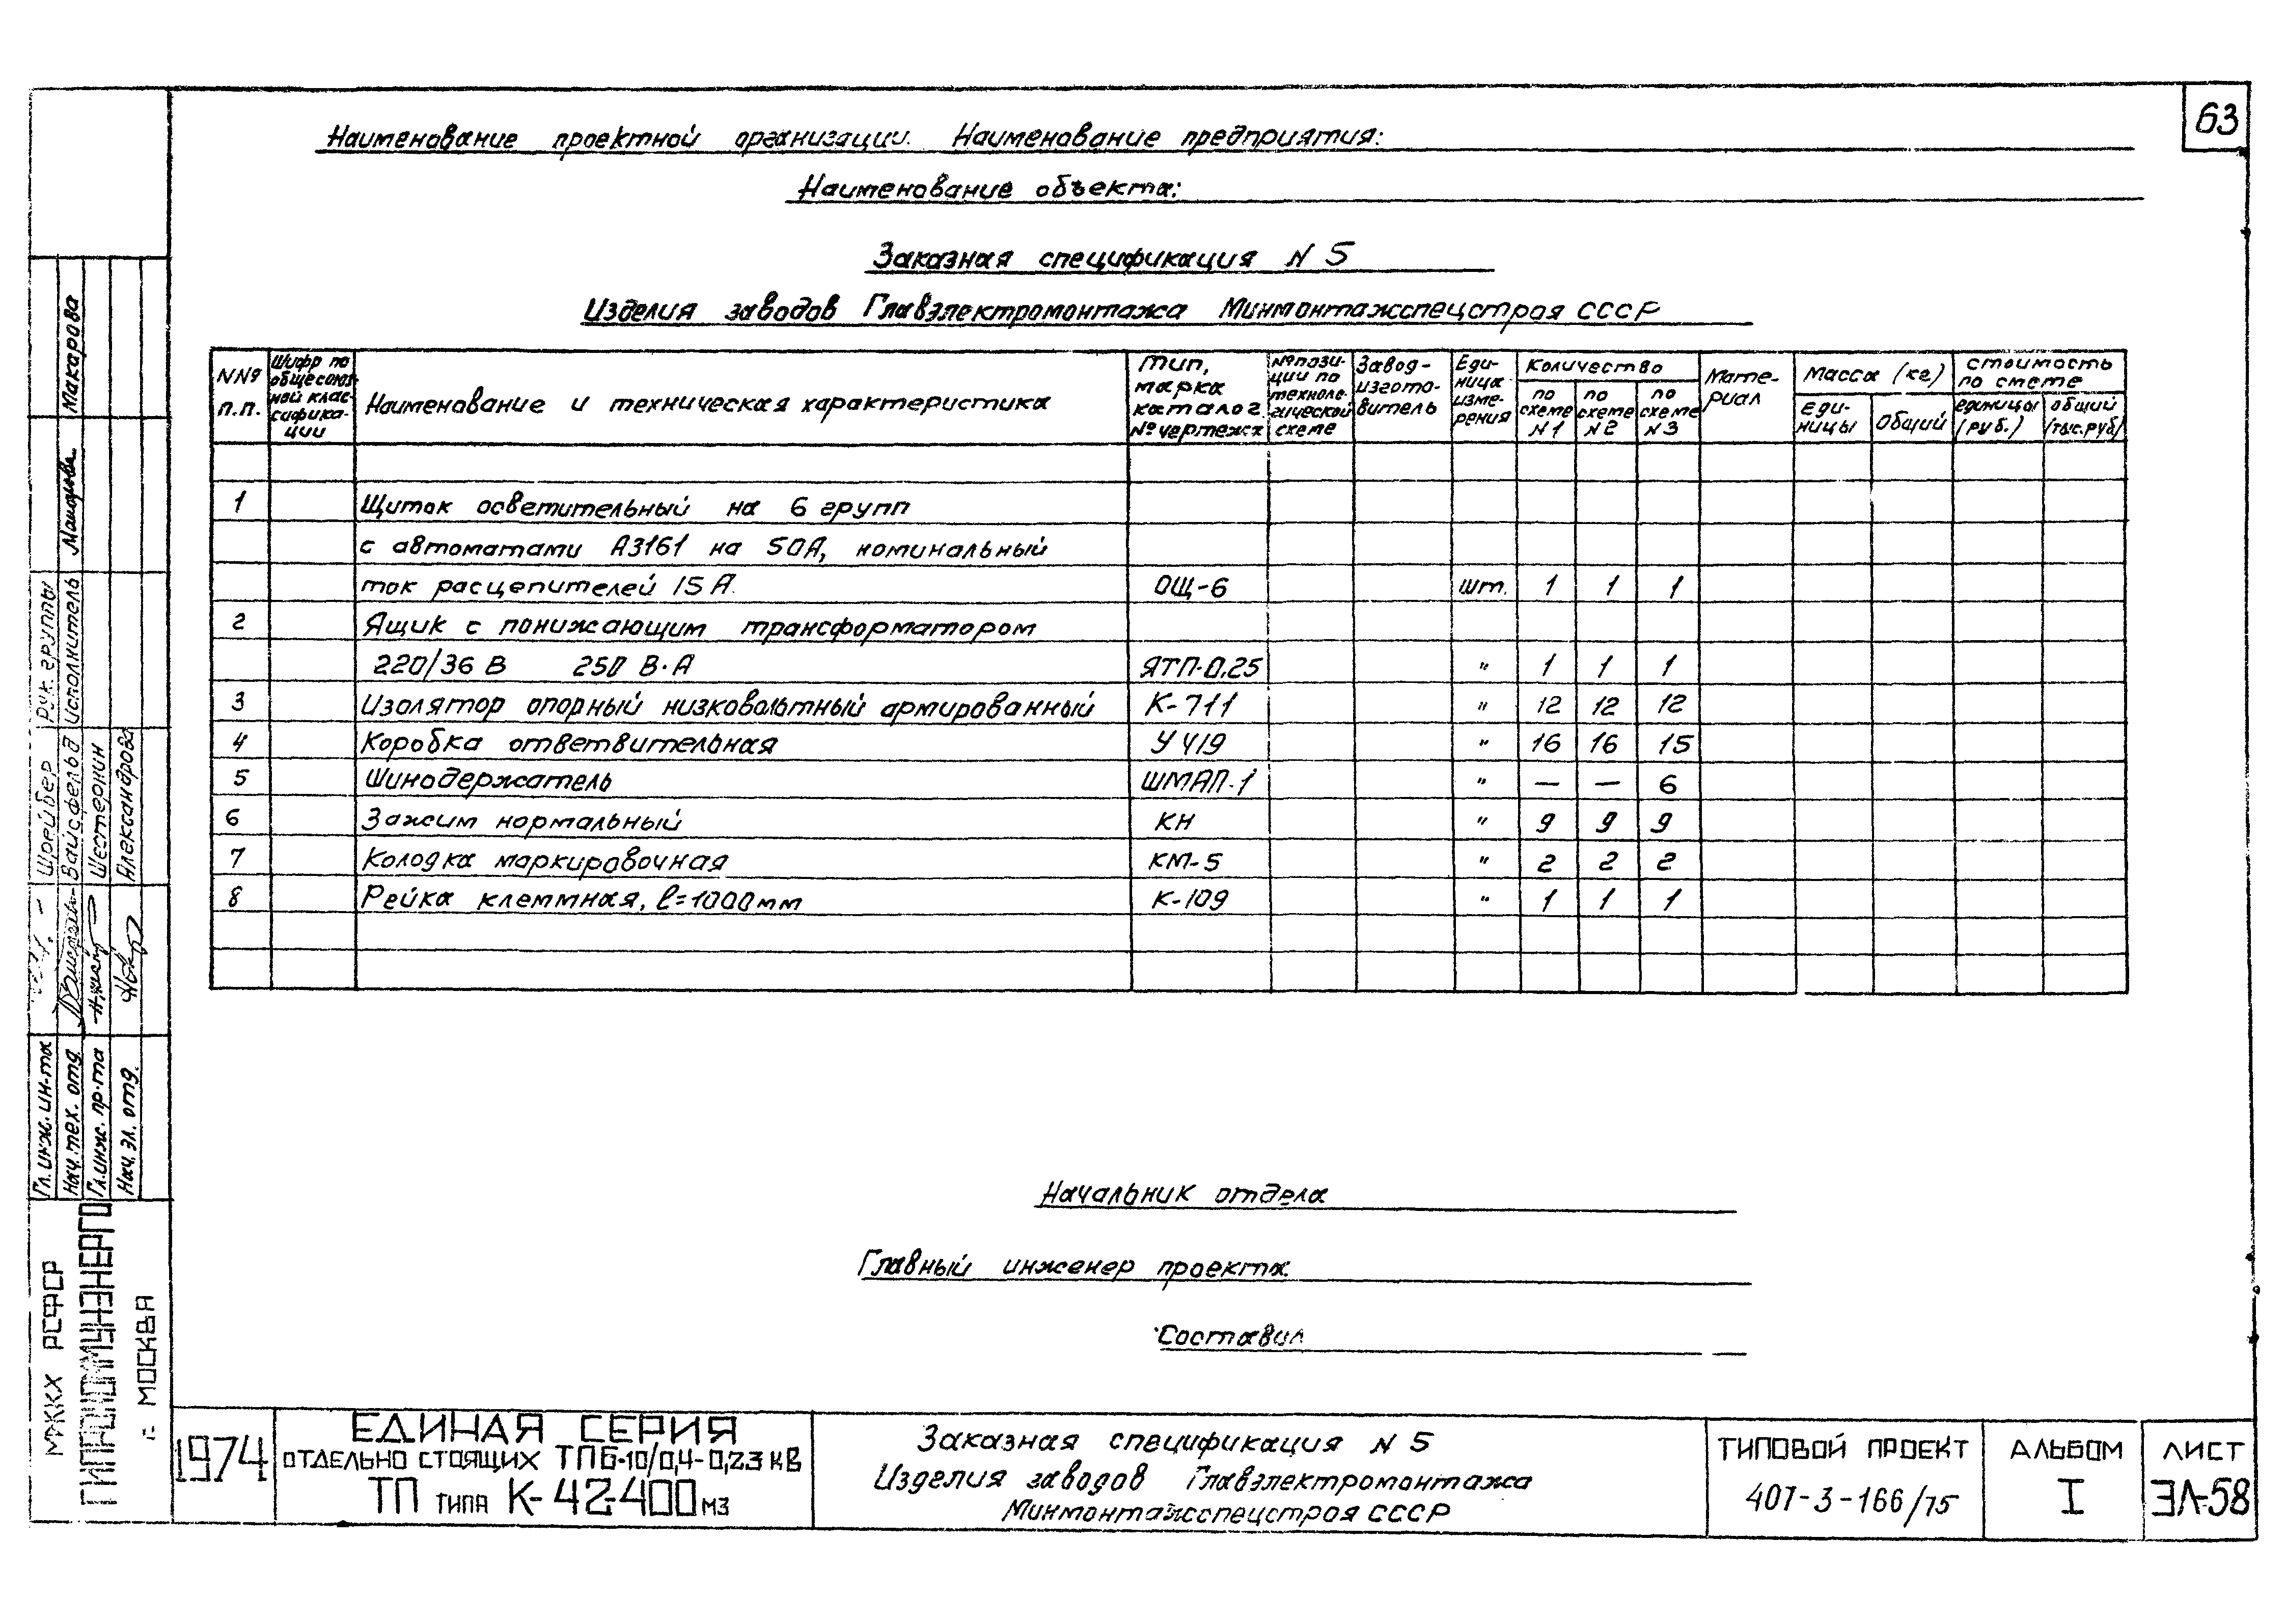 63
Наименование проектной организации. Наименование предприятия:
Наименование объекта:
Заказная спецификация N 5
Изделия заводов Главэлектромонтажа Минмонтажспецстроя СССР
NNº п.п.
Шифр по общесоюзной классификации
Наименование и техническая характеристика
Тип, марка каталог. №чертежа
№ позиции по технологической схеме
Завод-изготовитель
Единица измерения
Количество
по схеме N1
по схеме N2
по схеме N3
Материал
Масса (кг)
единицы
общий
стоимость по смете
единицы (руб.)
общий (тыс.руб)
1 Щиток осветительный на 6 групп
с автоматами А3161 на 50А, номинальный
ток расцепителей 15А. ОЩ-6 шт. 1 1 1
2 Ящик с понижающим трансформатором
220/36 В 250 В·А ЯТП-0.25 " 1 1 1
3 Изолятор опорный низковольтный армированный К-711 " 12 12 12
4 Коробка ответвительная У 419 " 16 16 15
5 Шинодержатель ШМАП-1 " — — 6
6 Зажим нормальный КН " 9 9 9
7 Колодка маркировочная КМ-5 " 2 2 2
8 Рейка клеммная, ℓ=1000мм К-109 " 1 1 1
Начальник отдела
Главный инженер проекта
Составил
1974
ЕДИНАЯ СЕРИЯ
ОТДЕЛЬНО СТОЯЩИХ ТП 6-10/0,4-0,23 кВ
ТП ТИПА К-42-400 М3
Заказная спецификация N 5
Изделия заводов Главэлектромонтажа
Минмонтажспецстроя СССР
ТИПОВОЙ ПРОЕКТ
407-3-166/75
АЛЬБОМ
I
ЛИСТ
ЭЛ-58
МЖКХ РСФСР
ГИПРОКОММУНЭНЕРГО
г. МОСКВА
Гл. инж. ин-та Шрейбер
Нач. тех. отд. Вайсфельд
Гл. инж. пр-та Шестернин
Нач. эл. отд. Александрова
Рук. группы
Исполнитель Макарова